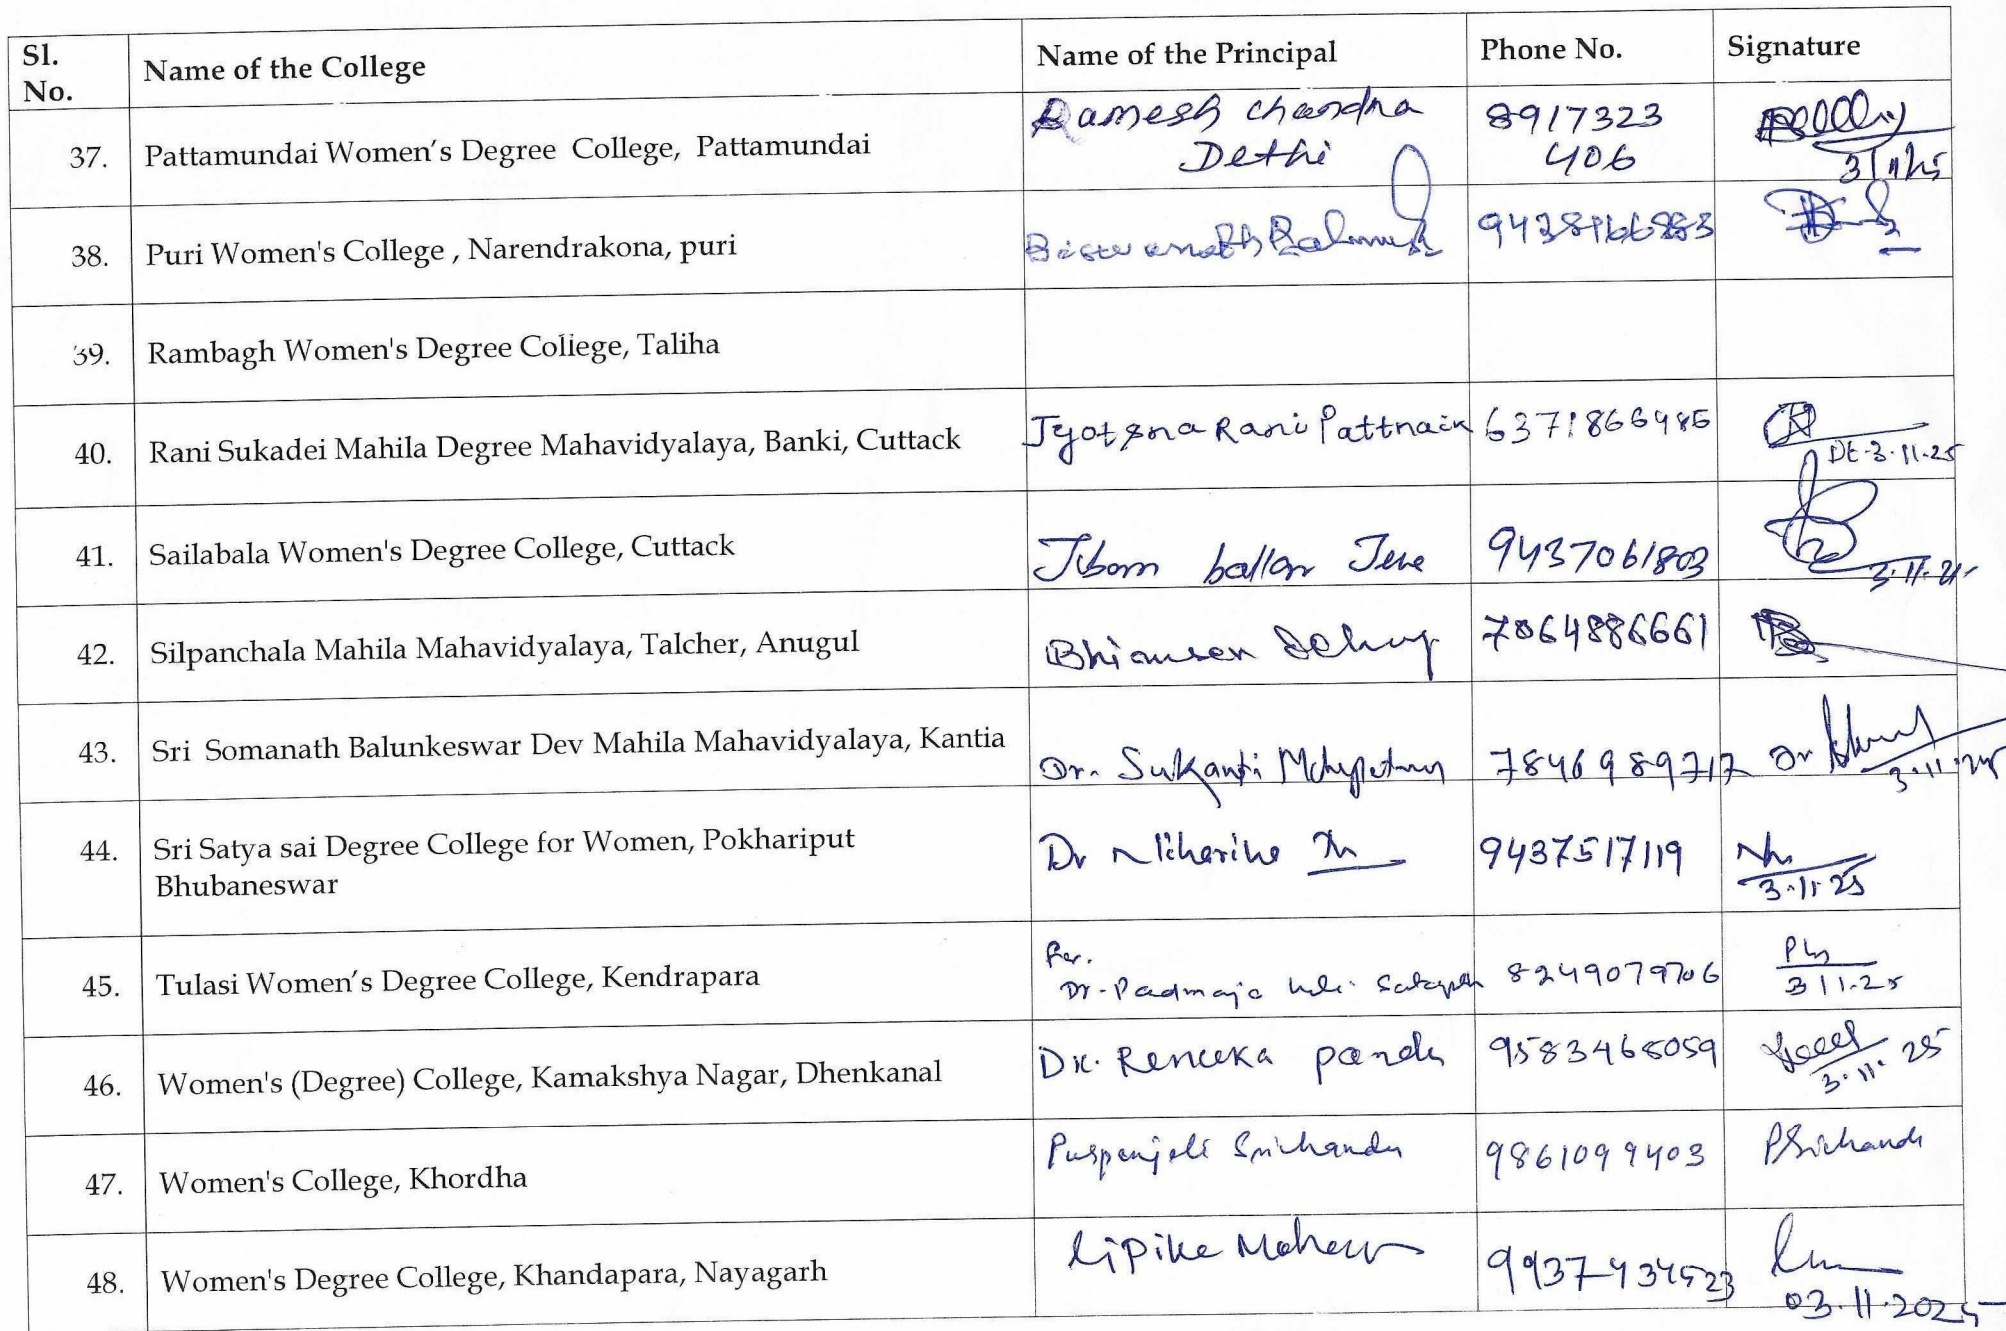 Sl. No. Name of the College Name of the Principal Phone No. Signature
37. Pattamundai Women's Degree College, Pattamundai Ramesh Chandra Dethi 8917323 406 3/11/25
38. Puri Women's College , Narendrakona, puri Biswanath 9438166883
39. Rambagh Women's Degree College, Taliha
40. Rani Sukadei Mahila Degree Mahavidyalaya, Banki, Cuttack Jyotsna Rani Pattnaik 6371866486 Dt-3.11.25
41. Sailabala Women's Degree College, Cuttack Jena 9437061803
42. Silpanchala Mahila Mahavidyalaya, Talcher, Anugul Bhimsen 7064886661
43. Sri Somanath Balunkeswar Dev Mahila Mahavidyalaya, Kantia Dr. Sukanti Mohapatra 7846989717 3.11.25
44. Sri Satya sai Degree College for Women, Pokhariput Bhubaneswar Dr Niharika 9437517119 3.11.25
45. Tulasi Women's Degree College, Kendrapara Dr. Padmaja 8249079706 3 11.25
46. Women's (Degree) College, Kamakshya Nagar, Dhenkanal Dr. Renuka panda 9583468059 3.11.25
47. Women's College, Khordha Puspanjali Srichandan 9861099403
48. Women's Degree College, Khandapara, Nayagarh Lipika 9937434523 03.11.2025